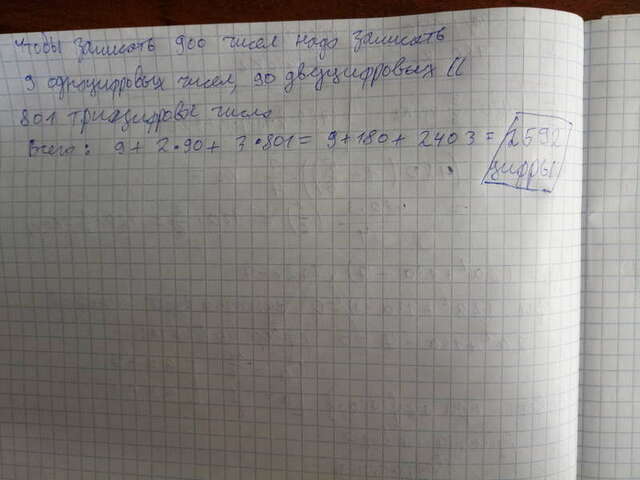 Чтобы записать 900 чисел надо записать
9 одноцифровых чисел, 90 двуцифровых и
801 трицифровое число.
Всего: 9+2•90+3•801=9+180+2403=2592
цифры